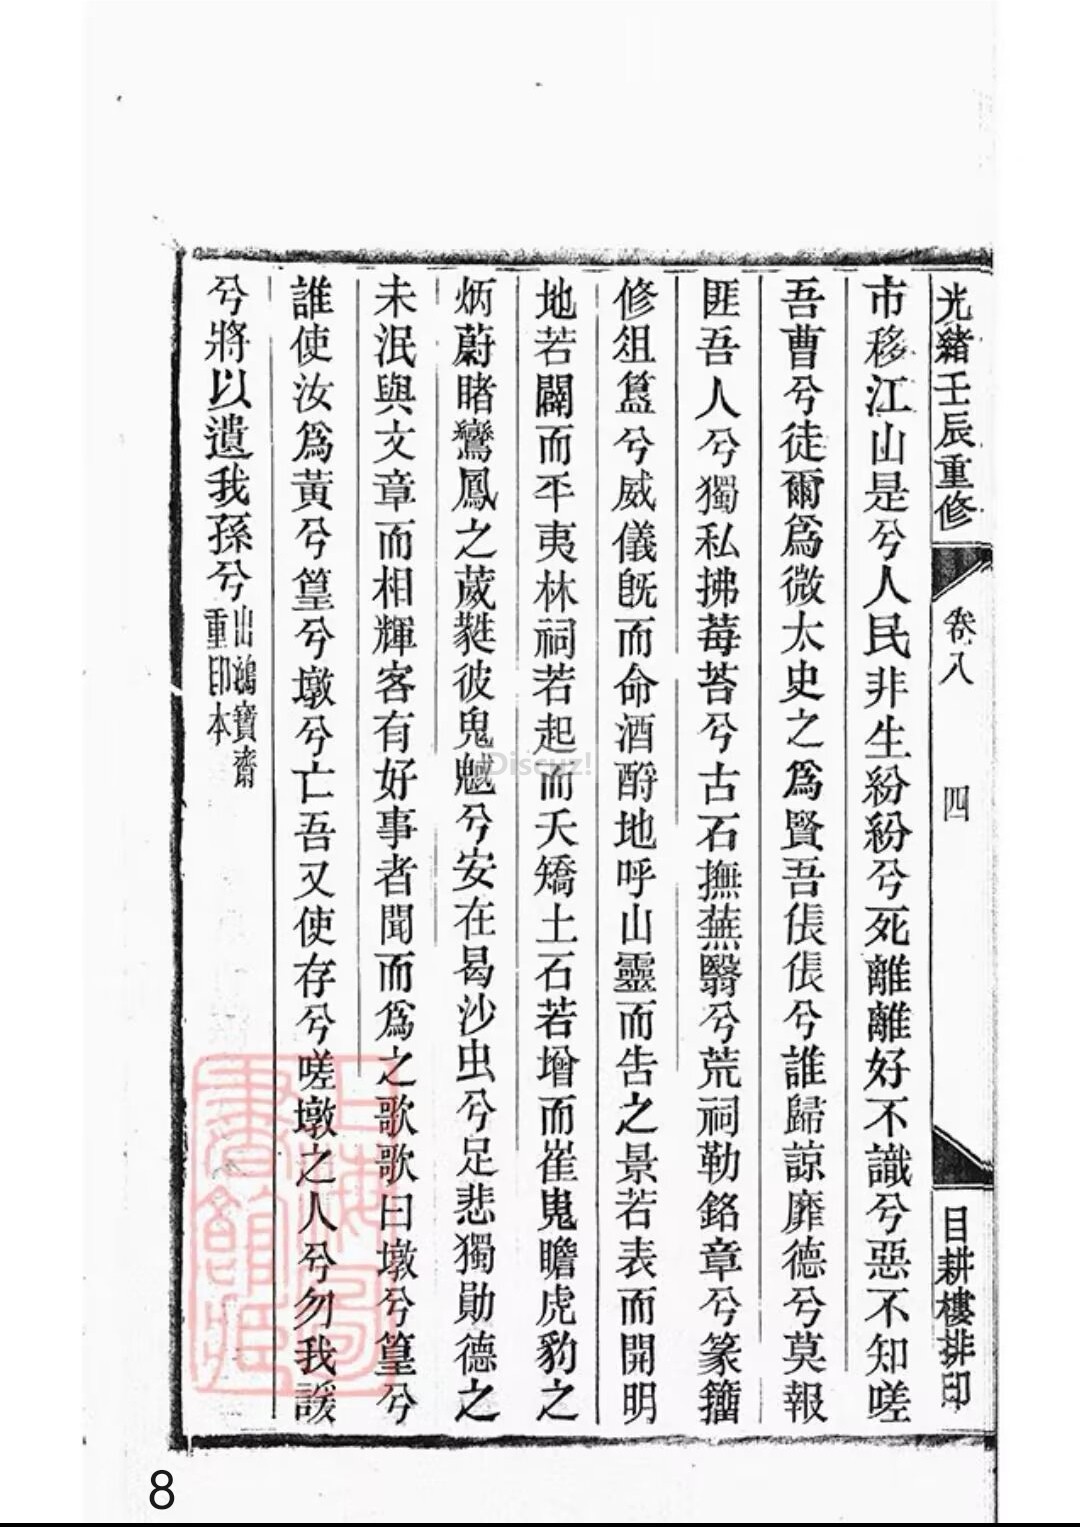 光緒壬辰重修 卷八 四 目耕樓排印
市移江山是兮人民非生紛紛兮死離離好不識兮惡不知嗟
吾曹兮徒爾爲微太史之爲賢吾倀倀兮誰歸諒靡德兮莫報
匪吾人兮獨私拂莓苔兮古石撫蕪翳兮荒祠勒銘章兮篆籀
修俎簋兮威儀旣而命酒酹地呼山靈而告之景若表而開明
地若闢而平夷林祠若起而夭矯土石若增而崔嵬瞻虎豹之
炳蔚睹鸞鳳之葳蕤彼鬼魊兮安在曷沙虫兮足悲獨勛德之
未泯與文章而相輝客有好事者聞而爲之歌歌曰墩兮篁兮
誰使汝爲黃兮篁兮墩兮亡吾又使存兮嗟墩之人兮勿我諼
兮將以遺我孫兮出鴻寶齋
重印本
上海圖
書館藏
Discuz!
8